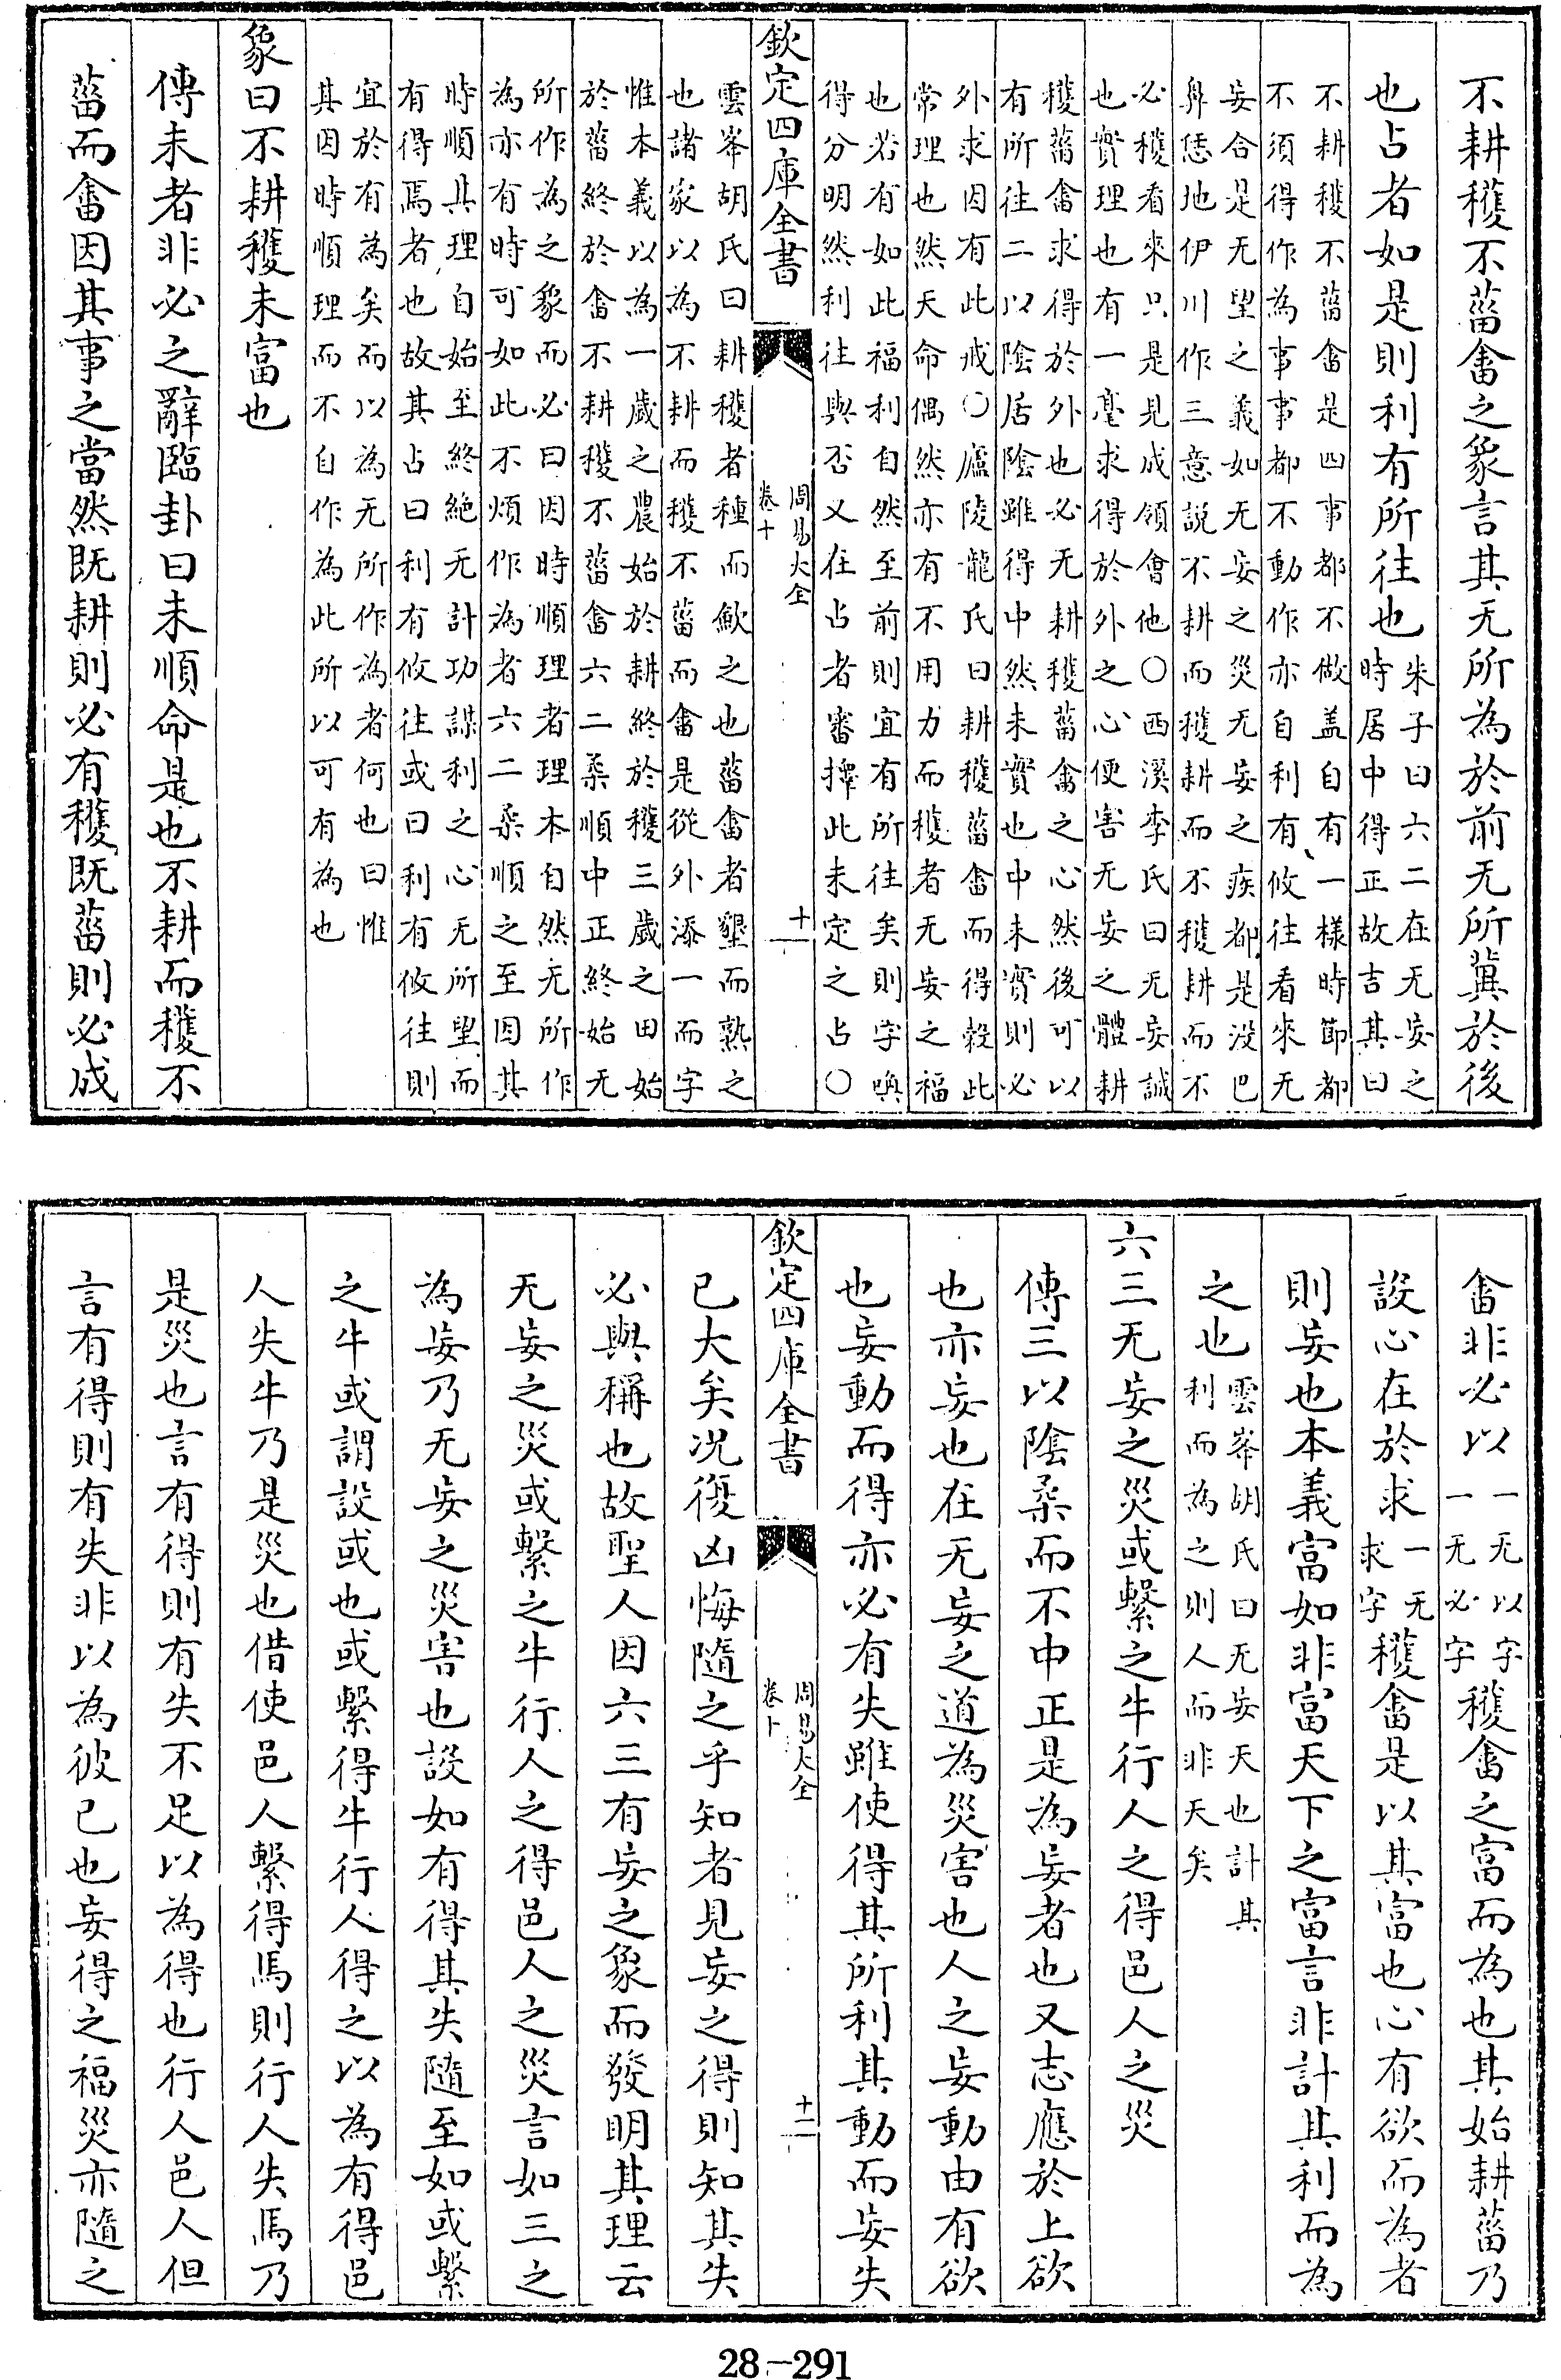 不耕穫不菑畬之象言其无所為於前无所冀於後
也占者如是則利有所往也
朱子曰六二在无妄之
時居中得正故吉其曰
不耕穫不菑畬是四事都不做盖自有一樣時節都
不須得作為事事都不動作亦自利有攸往看來无
妄合是无望之義如无妄之災无妄之疾都是没巴
鼻恁地伊川作三意説不耕而穫耕而不穫耕而不
必穫看來只是見成領會他○西溪李氏曰无妄誠
也實理也有一毫求得於外之心便害无妄之體耕
穫菑畬求得於外也必无耕穫菑畬之心然後可以
有所往二以陰居陰雖得中然未實也中未實則必
外求因有此戒○廬陵龍氏曰耕穫菑畬而得穀此
常理也然天命偶然亦有不用力而穫者无妄之福
也若有如此福利自然至前則宜有所往矣則字喚
得分明然利往與否又在占者審擇此未定之占○
欽定四庫全書
周易大全
卷十
十一
雲峯胡氏曰耕穫者種而歛之也菑畬者墾而熟之
也諸家以為不耕而穫不菑而畬是從外添一而字
惟本義以為一歲之農始於耕終於穫三歲之田始
於菑終於畬不耕穫不菑畬六二柔順中正終始无
所作為之象而必曰因時順理者理本自然无所作
為亦有時可如此不煩作為者六二柔順之至因其
時順其理自始至終絶无計功謀利之心无所望而
有得焉者也故其占曰利有攸往或曰利有攸往則
宜於有為矣而以為无所作為者何也曰惟
其因時順理而不自作為此所以可有為也
象曰不耕穫未富也
傳未者非必之辭臨卦曰未順命是也不耕而穫不
菑而畬因其事之當然既耕則必有穫既菑則必成
畬非必以
一无以字
一无必字
穫畬之富而為也其始耕菑乃
設心在於求
一无
求字
穫畬是以其富也心有欲而為者
則妄也本義富如非富天下之富言非計其利而為
之也
雲峯胡氏曰无妄天也計其
利而為之則人而非天矣
六三无妄之災或繫之牛行人之得邑人之災
傳三以陰柔而不中正是為妄者也又志應於上欲
也亦妄也在无妄之道為災害也人之妄動由有欲
也妄動而得亦必有失雖使得其所利其動而妄失
欽定四庫全書
周易大全
卷十
十二
已大矣況復凶悔隨之乎知者見妄之得則知其失
必與稱也故聖人因六三有妄之象而發明其理云
无妄之災或繫之牛行人之得邑人之災言如三之
為妄乃无妄之災害也設如有得其失隨至如或繫
之牛或謂設或也或繫得牛行人得之以為有得邑
人失牛乃是災也借使邑人繫得馬則行人失馬乃
是災也言有得則有失不足以為得也行人邑人但
言有得則有失非以為彼已也妄得之福災亦隨之
28-291